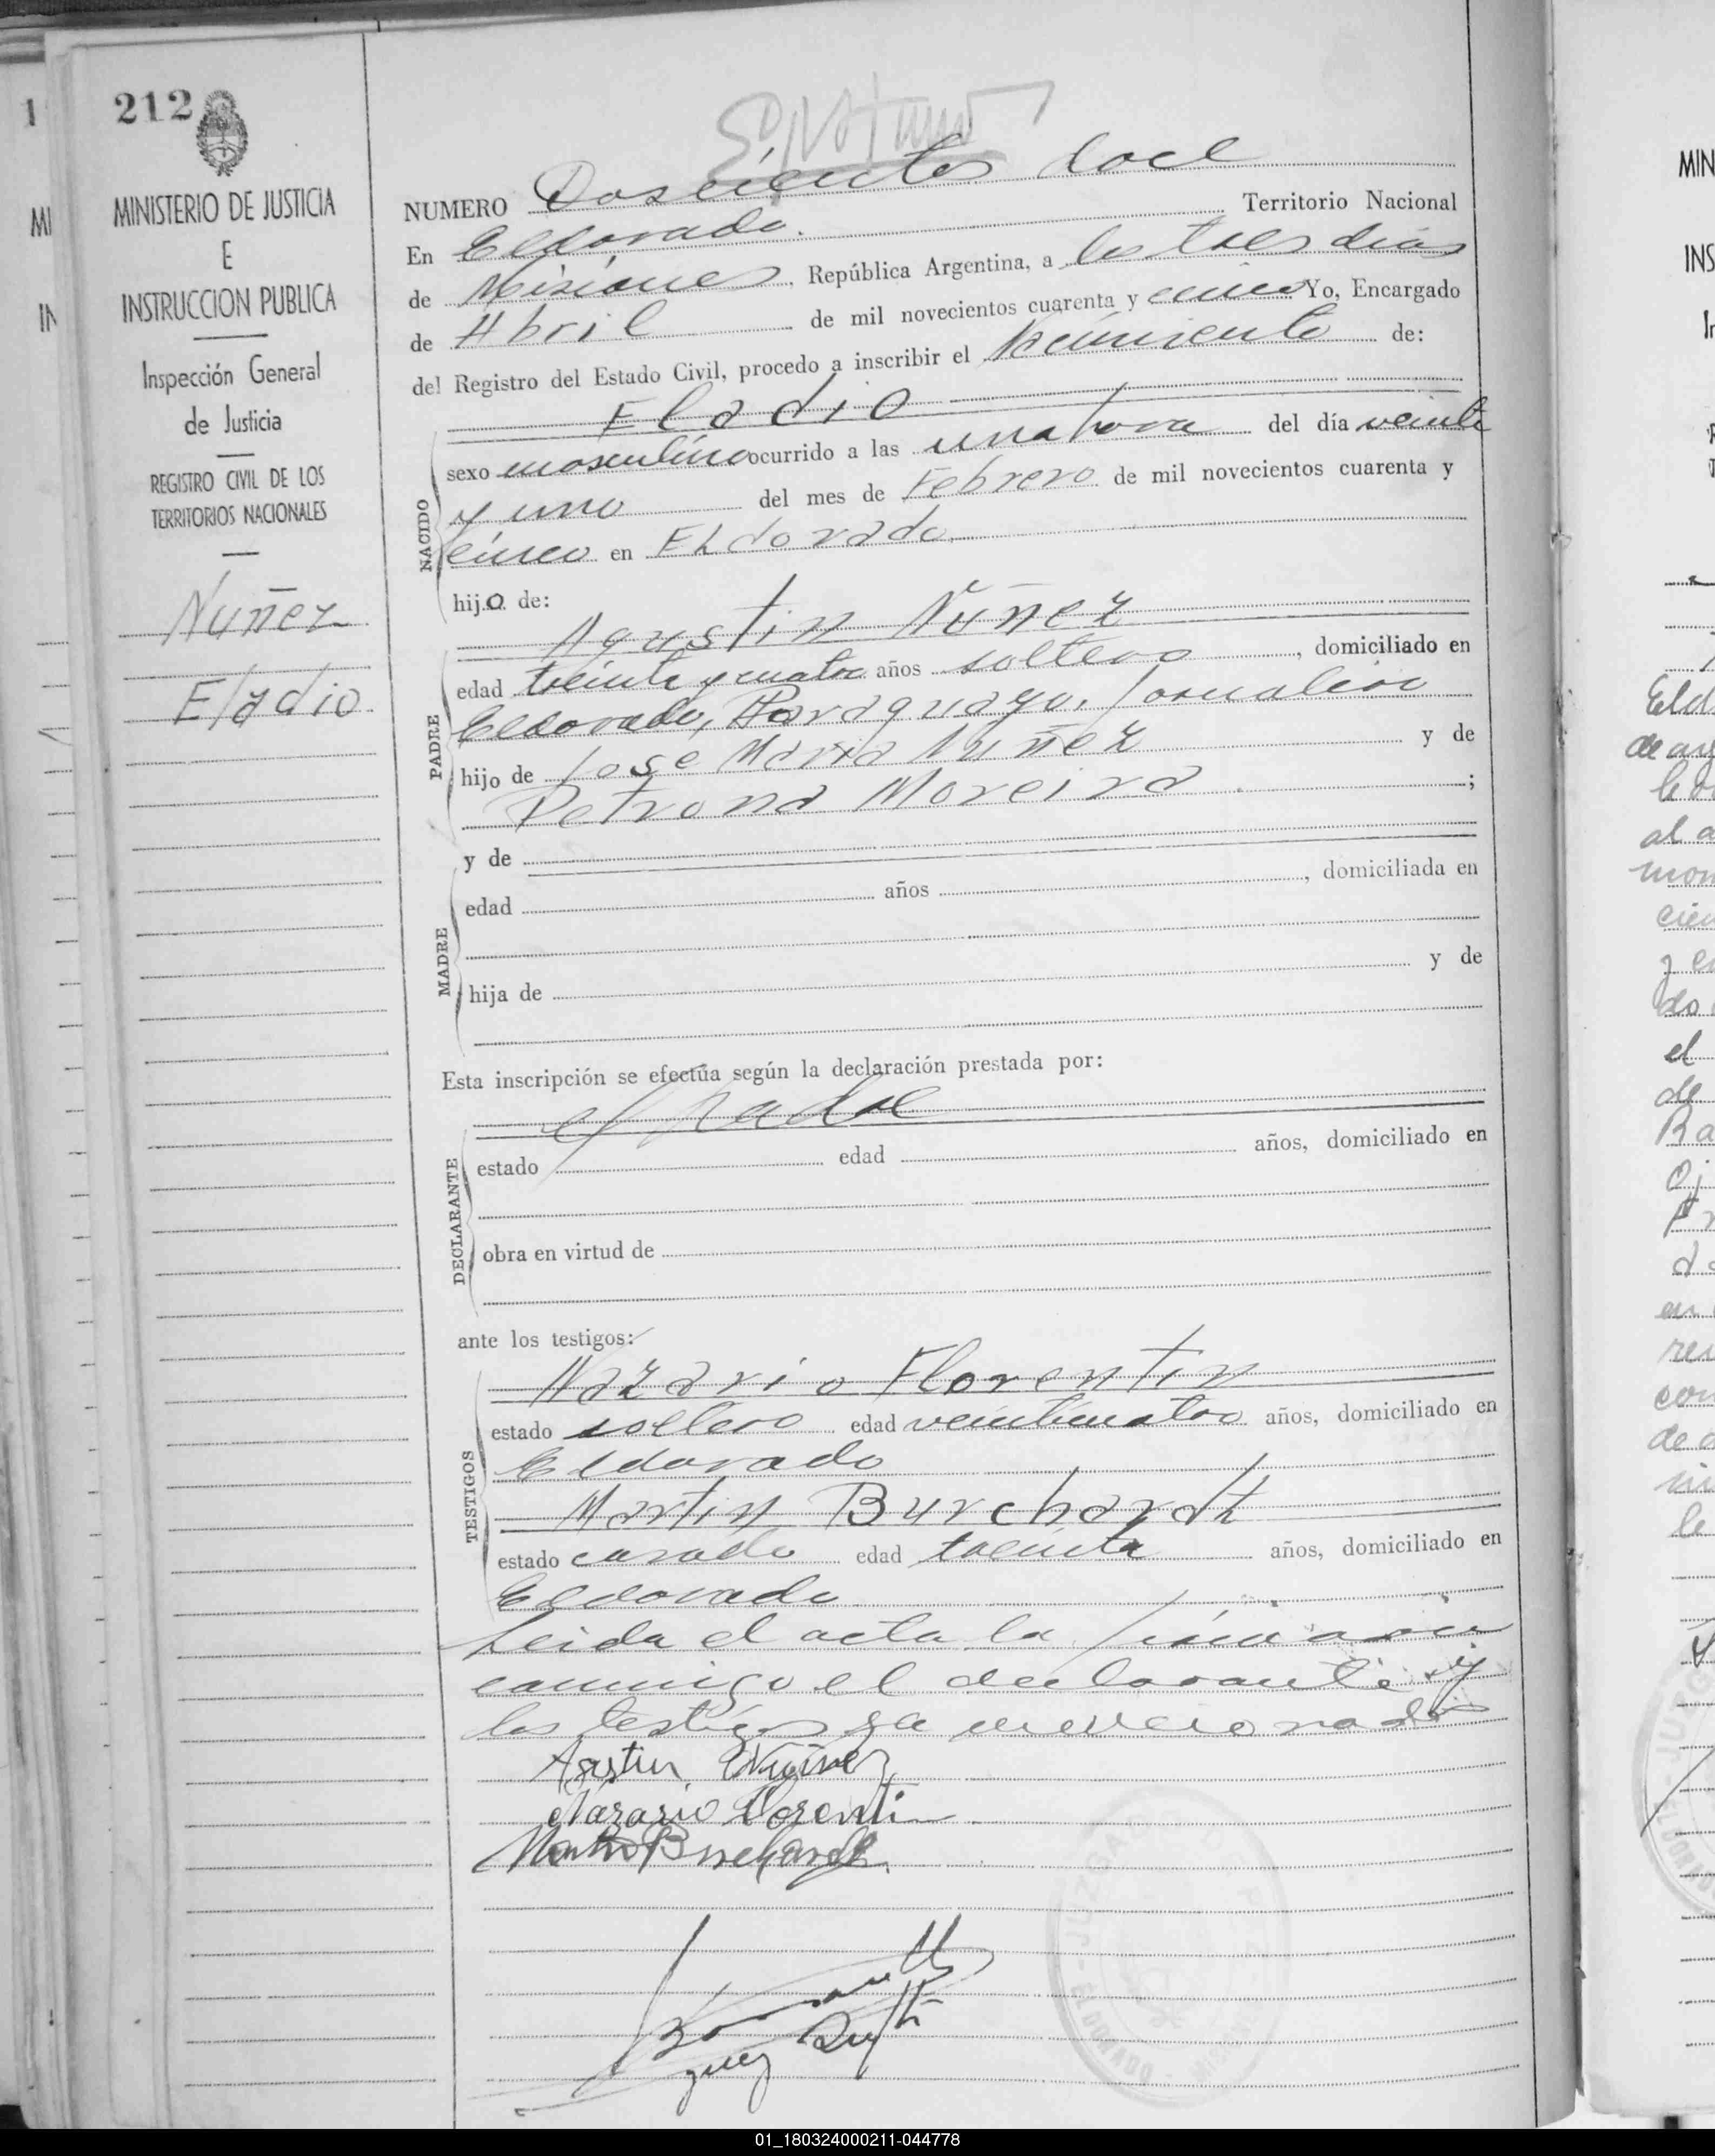 212
MINISTERIO DE JUSTICIA
E
INSTRUCCION PUBLICA
Inspección General
de Justicia
REGISTRO CIVIL DE LOS
TERRITORIOS NACIONALES
Nuñez
Eladio
NUMERO Doscientos doce
En Eldorado. Territorio Nacional
de Misiones, República Argentina, a los tres dias
de Abril de mil novecientos cuarenta y cinco Yo, Encargado
del Registro del Estado Civil, procedo a inscribir el Nacimiento de:
Eladio
NACIDO
sexo masculino ocurrido a las una hora del día veinte
y uno del mes de Febrero de mil novecientos cuarenta y
cinco en Eldorado
hijo de:
Agustin Nuñez
PADRE
edad treinta y cuatro años soltero, domiciliado en
Eldorado, Paraguayo, Jornalero
hijo de Jose Maria Nuñez y de
Petrona Moreira ;
y de
MADRE
edad años , domiciliada en
hija de y de
Esta inscripción se efectúa según la declaración prestada por:
el padre
DECLARANTE
estado edad años, domiciliado en
obra en virtud de
ante los testigos:
Nazario Florentin
TESTIGOS
estado soltero edad veinticuatro años, domiciliado en
Eldorado
Martin Burchardt
estado casado edad treinta años, domiciliado en
Eldorado
Leida el acta la firmaron
conmigo el declarante y
los testigos ya mencionados
Agustin Nuñez
Nazario Florentin
Martin Burchardt
01_180324000211-044778